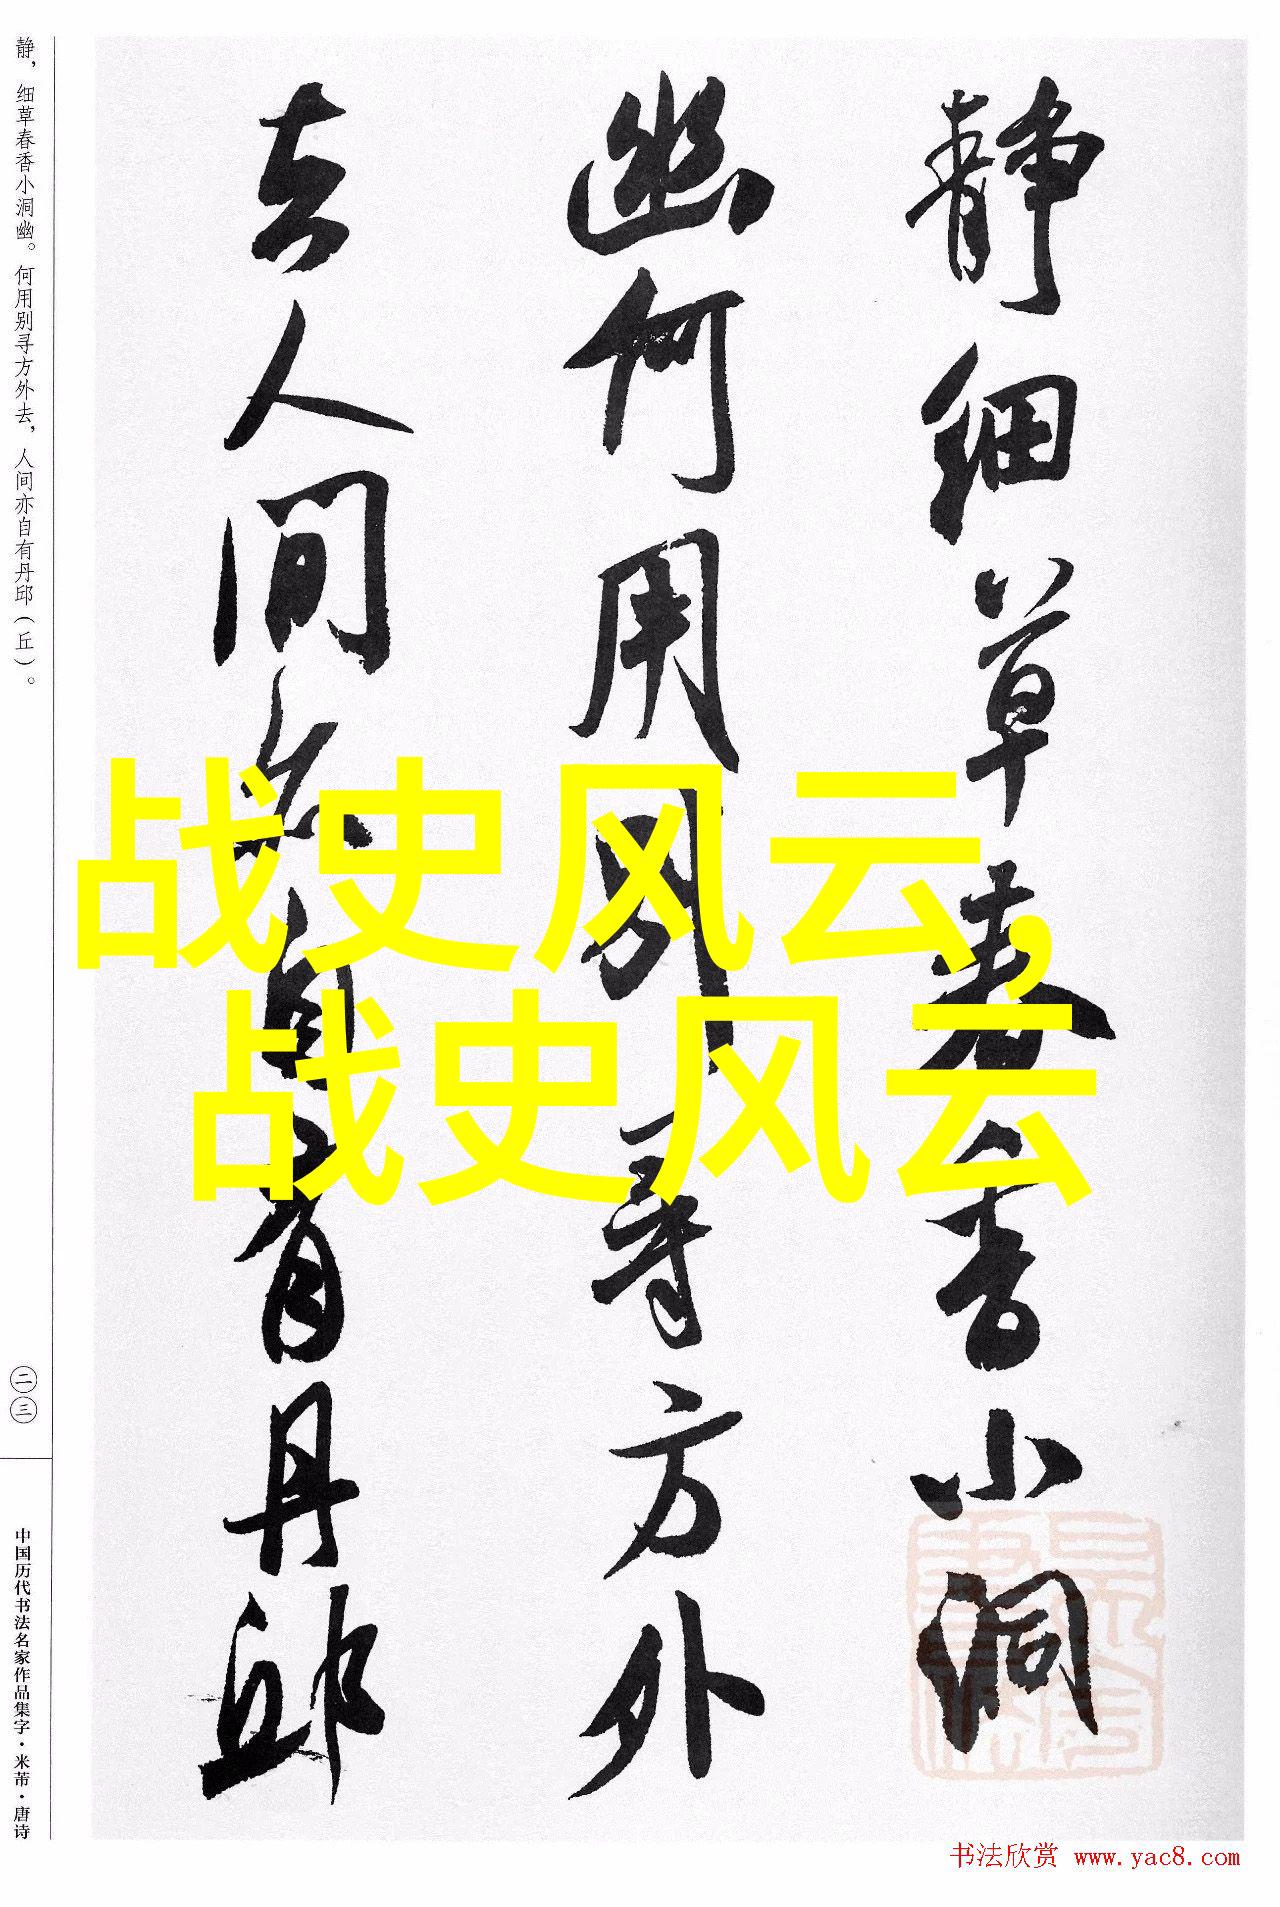 静细草春香小洞
幽何用别寻方外
去人间亦自有丹邱
战史风云,
战史风云
静，细草春香小洞幽。何用别寻方外去，人间亦自有丹邱（丘）。
二三
中国历代书法名家作品集字·米芾·唐诗
书法欣赏 www.yac8.com